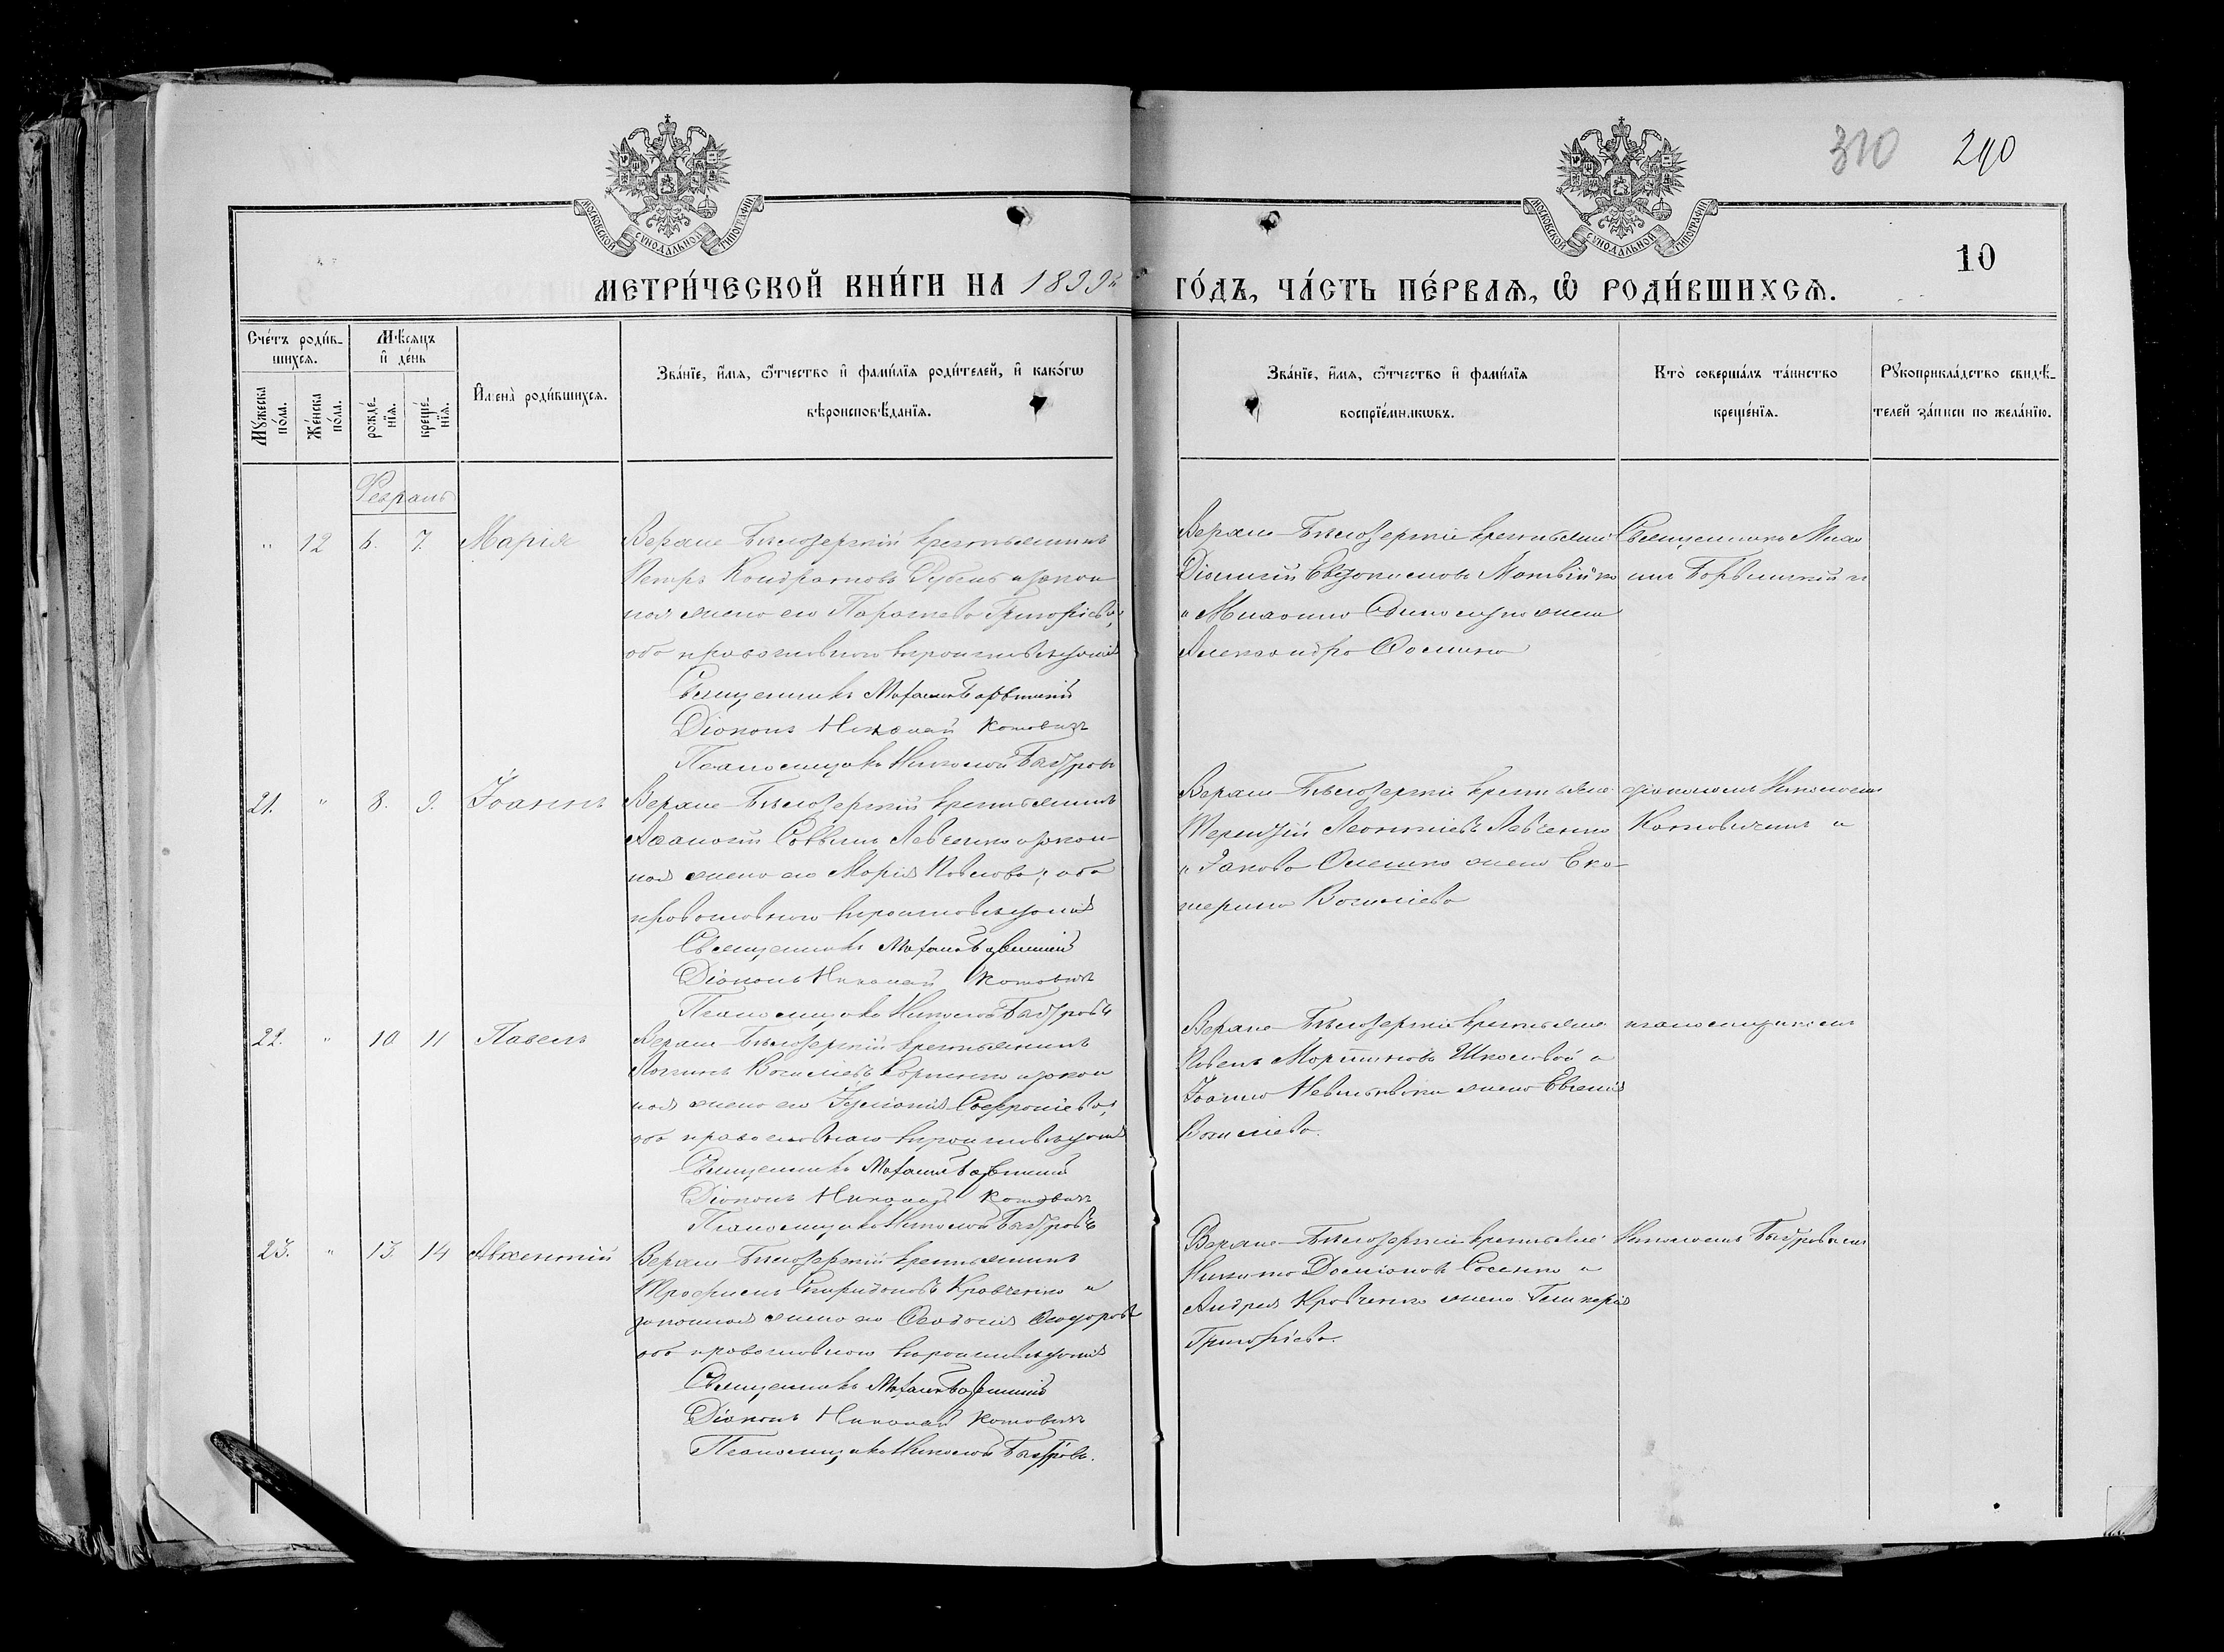 МОСКОВСКОЙ СѴНОДАЛЬНОЙ ТИПОГРАФІИ
МОСКОВСКОЙ СѴНОДАЛЬНОЙ ТИПОГРАФІИ
310 290
10
МЕТРИ́ЧЕСКОЙ КНИ́ГИ НА 1899й ГО́ДЪ, ЧА́СТЬ ПЕ́РВАѦ, Ѡ҆ РОДИ́ВШИХСѦ.
Сче́тъ роди́вшихсѧ.
Мꙋ́жеска по́ла.
Же́нска по́ла.
Мѣ́сѧцъ и҆ де́нь
рожде́нїѧ.
креще́нїѧ.
И҆мена̀ роди́вшихсѧ.
Зва́нїе, и҆́мѧ, ѻ҆́тчество и҆ фами́лїѧ роди́телей, и҆ како́гѡ вѣроисповѣ́данїѧ.
Зва́нїе, и҆́мѧ, ѻ҆́тчество и҆ фами́лїѧ воспрїе́мникѡвъ.
Кто̀ соверша́лъ та́инство креще́нїѧ.
Рꙋкоприкла́дство свидѣ́телей за́писи по жела́нїю.
Февраль
" 12 6. 7. Марія
Верхне-Бѣлозерскій крестьянинъ
Петръ Кондратовъ Рубель и закон
ная жена его Параскева Григоріева,
оба православнаго вѣроисповѣданія
Священникъ Михаилъ
Діаконъ Николай Котовичъ
Псаломщикъ Николай Быстровъ
Верхне-Бѣлозерскіе крестьяне
Діонисій Матвѣйко
и Михаила жена
Александра
Священникъ Миха
илъ и
21. " 8. 9. Іоаннъ
Верхне-Бѣлозерскій крестьянинъ
Аѳанасій Саввинъ Левченко и закон-
ная жена его Марія Павлова; оба
православнаго вѣроисповѣданія
Священникъ Михаилъ
Діаконъ Николай Котовичъ
Псаломщикъ Николай Быстровъ
Верхне-Бѣлозерскіе крестьяне
Терентій Леонтіевъ Левченко
и Іакова Олешко жена Ека-
терина Васильева
діакономъ Николаемъ
Котовичемъ и
22. " 10 11 Павелъ
Верхне-Бѣлозерскій крестьянинъ
Логгинъ Васильевъ и закон
ная жена его Іуліанія Софроніева,
оба православнаго вѣроисповѣданія
Священникъ Михаилъ
Діаконъ Николай Котовичъ
Псаломщикъ Николай Быстровъ
Верхне-Бѣлозерскіе крестьяне
Павелъ Мартиновъ Школовой и
Іоанна жена Евгенія
Васильева.
псаломщикомъ
23. " 13 14 Авксентій
Верхне-Бѣлозерскій крестьянинъ
Трофимъ Спиридоновъ Кравченко и
законная жена его Ѳеодосія Ѳеодорова
оба православнаго вѣроисповѣданія
Священникъ Михаилъ
Діаконъ Николай Котовичъ
Псаломщикъ Николай Быстровъ.
Верхне-Бѣлозерскіе крестьяне
Никита Даміановъ Сосенко и
Андрея Кравченко жена Гликерія
Григоріева.
Николаемъ Быстровымъ